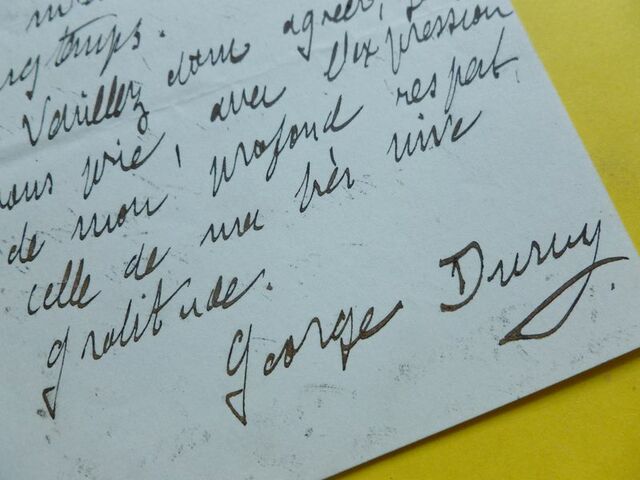 longtemps.
Veuillez donc agréer, je
vous prie, avec l'expression
de mon profond respect,
celle de ma très vive
gratitude.
George Duruy.